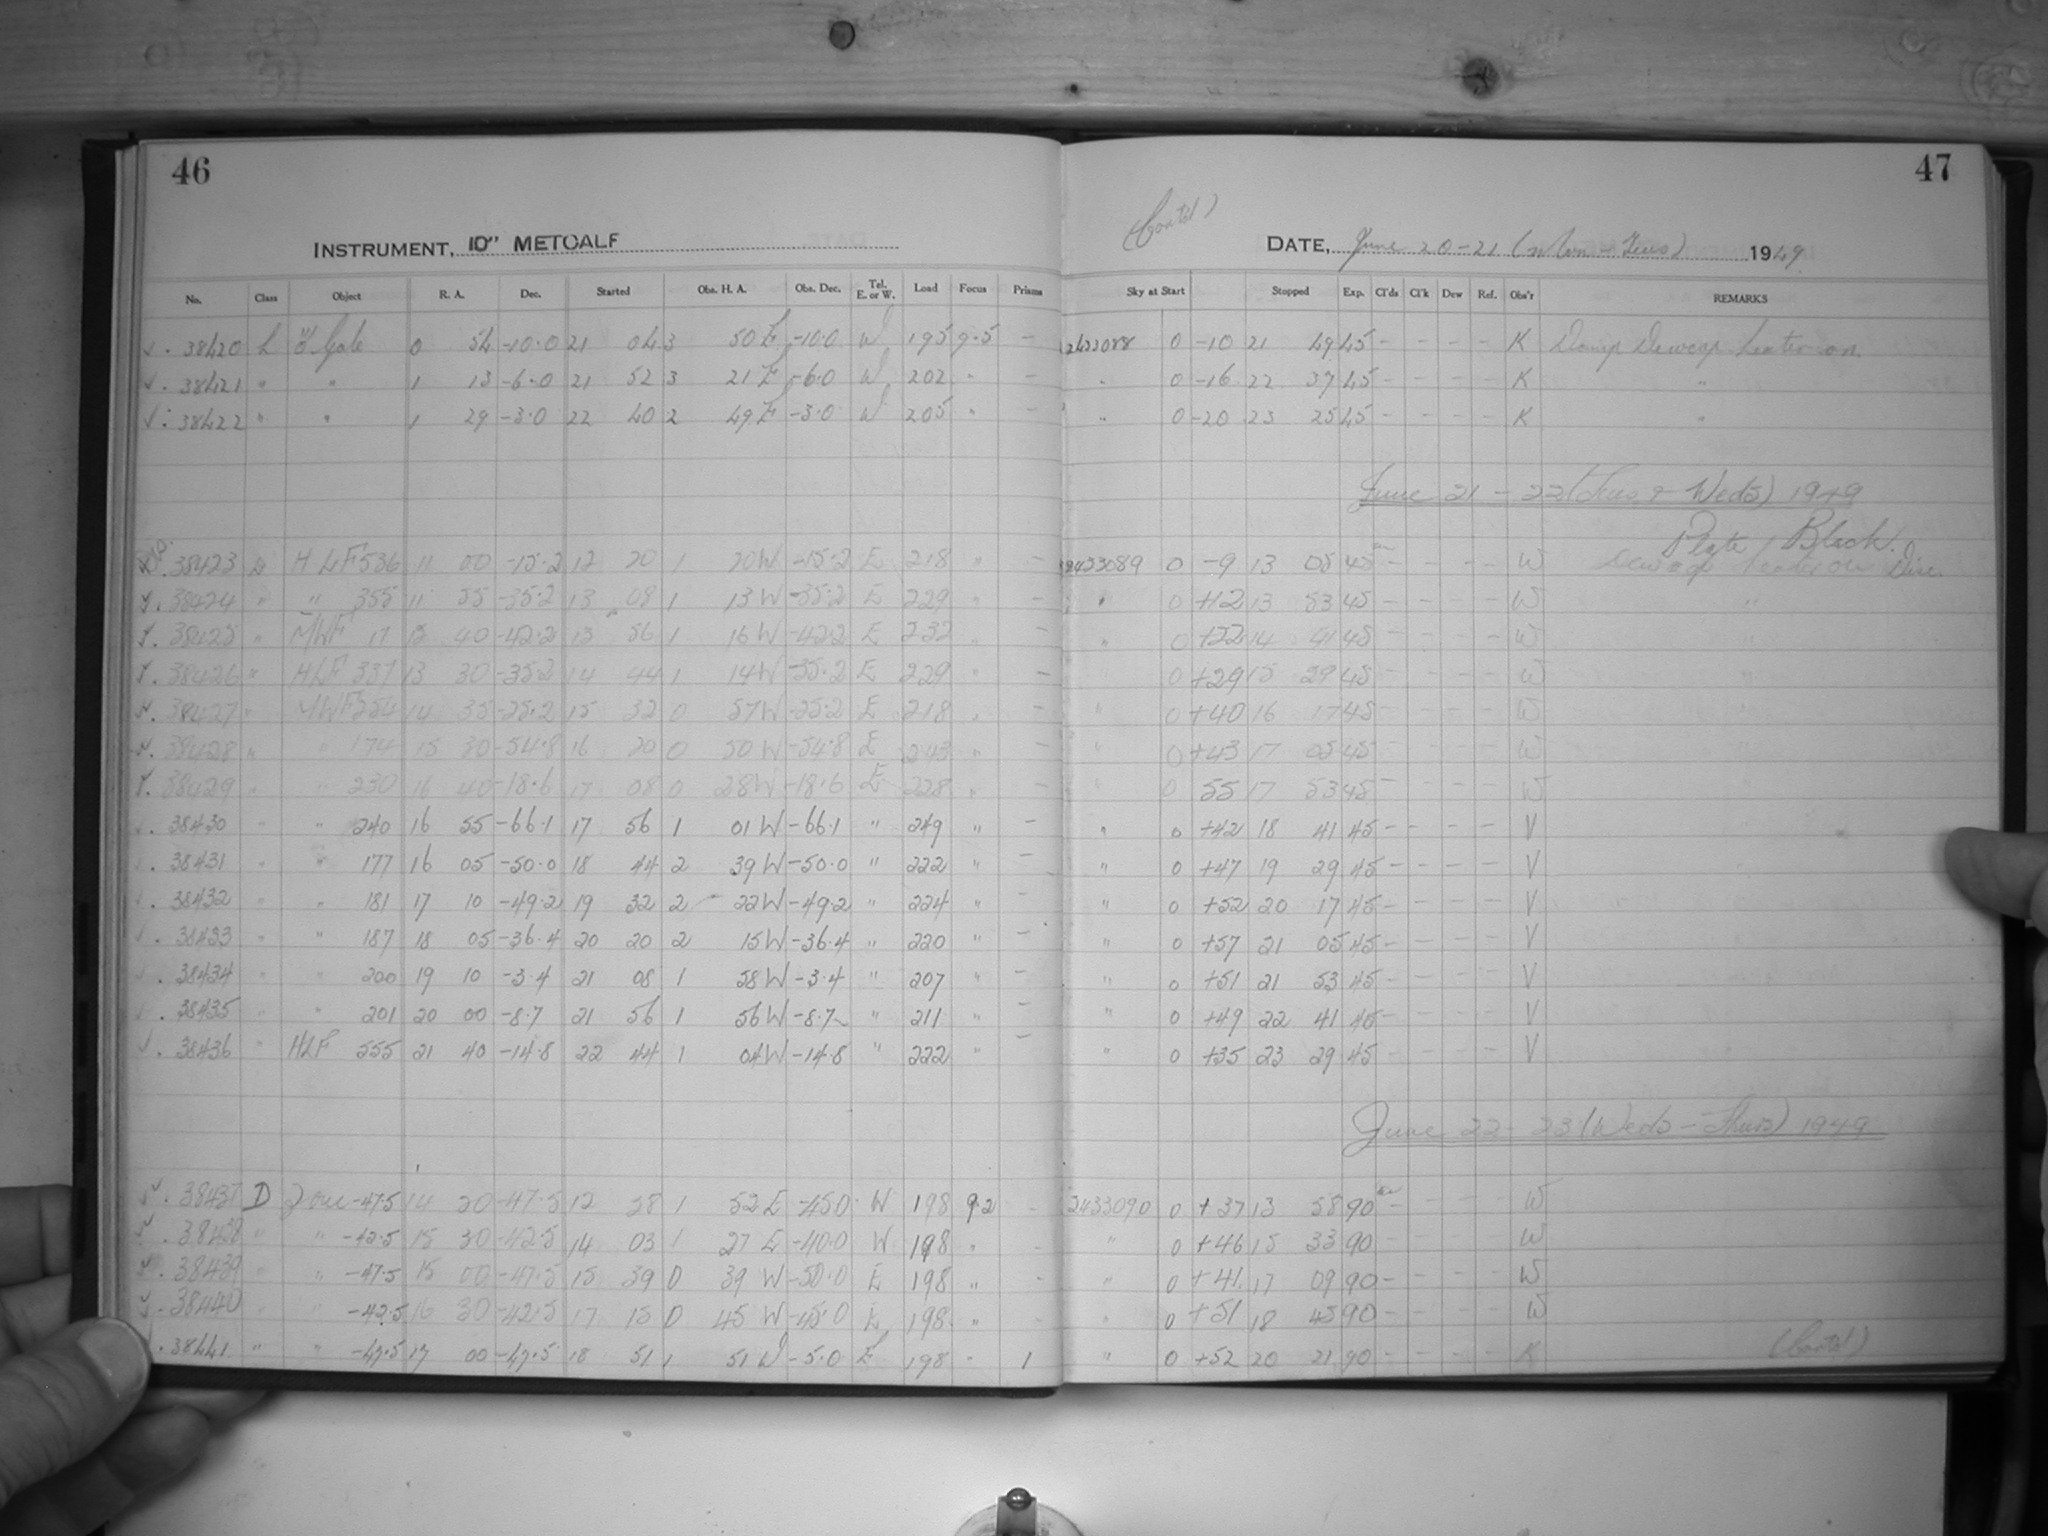 46
47
(Contd)
INSTRUMENT, 10" METCALF
DATE, June 20-21 (Mon - Tues) 1949
No. Class Object R. A. Dec. Started Obs. H. A. Obs. Dec. Tel. E. or W. Load Focus Prisms Sky at Start Stopped Exp. Cl'ds Cl'k Dew Ref. Obs'r REMARKS
38420 L 0 54 -10.0 21 04 3 50 E -10.0 W 195 9.5 - 2433088 0 -10 21 49 45 - - - - K Damp Dewcap heater on
38421 " " 1 13 -6.0 21 52 3 21 E -6.0 W 202 " - " 0 -16 22 37 45 - - - - K "
38422 " " 1 29 -3.0 22 40 2 49 E -3.0 W 205 " - " 0 -20 23 25 45 - - - - K "
June 21 - 22 (Tues & Weds) 1949
Plate Black.
38423 HLF 536 11 00 -15.2 12 20 1 20 W -15.2 E 218 " - 2433089 0 -9 13 05 45 - - - - W Dewcap heater on
38424 " " 355 11 55 -35.2 13 08 1 13 W -35.2 E 229 " - " 0 +12 13 53 45 - - - - W "
38425 " MWF 17 12 40 -42.2 13 56 1 16 W -42.2 E 232 " - " 0 +22 14 41 45 - - - - W "
38426 " HLF 337 13 30 -35.2 14 44 1 14 W -35.2 E 229 " - " 0 +29 15 29 45 - - - - W
38427 " MWF 254 14 35 -25.2 15 32 0 57 W -25.2 E 218 " - " 0 +40 16 17 45 - - - - W
38428 " " 174 15 30 -54.8 16 20 0 50 W -54.8 E 243 " - " 0 +43 17 05 45 - - - - W
38429 " " 230 16 40 -18.6 17 08 0 28 W -18.6 E 228 " - " 0 55 17 53 45 - - - - W
38430 " " 240 16 55 -66.1 17 56 1 01 W -66.1 " 249 " - " 0 +42 18 41 45 - - - - V
38431 " " 177 16 05 -50.0 18 44 2 39 W -50.0 " 222 " - " 0 +47 19 29 45 - - - - V
38432 " " 181 17 10 -49.2 19 32 2 22 W -49.2 " 224 " - " 0 +52 20 17 45 - - - - V
38433 " " 187 18 05 -36.4 20 20 2 15 W -36.4 " 220 " - " 0 +57 21 05 45 - - - - V
38434 " " 200 19 10 -3.4 21 08 1 58 W -3.4 " 207 " - " 0 +51 21 53 45 - - - - V
38435 " " 201 20 00 -8.7 21 56 1 56 W -8.7 " 211 " - " 0 +49 22 41 45 - - - - V
38436 " HLF 555 21 40 -14.8 22 44 1 04 W -14.8 " 222 " - " 0 +35 23 29 45 - - - - V
June 22 - 23 (Weds - Thurs) 1949
38437 D Zone -47.5 14 20 -47.5 12 28 1 52 E -45.0 W 198 9.2 - 2433090 0 +37 13 58 90 - - - - W
38438 " " -42.5 15 30 -42.5 14 03 1 27 E -40.0 W 198 " - " 0 +46 15 33 90 - - - - W
38439 " " -47.5 15 00 -47.5 15 39 0 39 W -50.0 E 198 " - " 0 +41 17 09 90 - - - - W
38440 " " -42.5 16 30 -42.5 17 15 0 45 W -45.0 E 198 " - " 0 +51 18 45 90 - - - - W
38441 " " -47.5 17 00 -47.5 18 51 1 51 W -5.0 E 198 " 1 " 0 +52 20 21 90 - - - - K
(Contd)